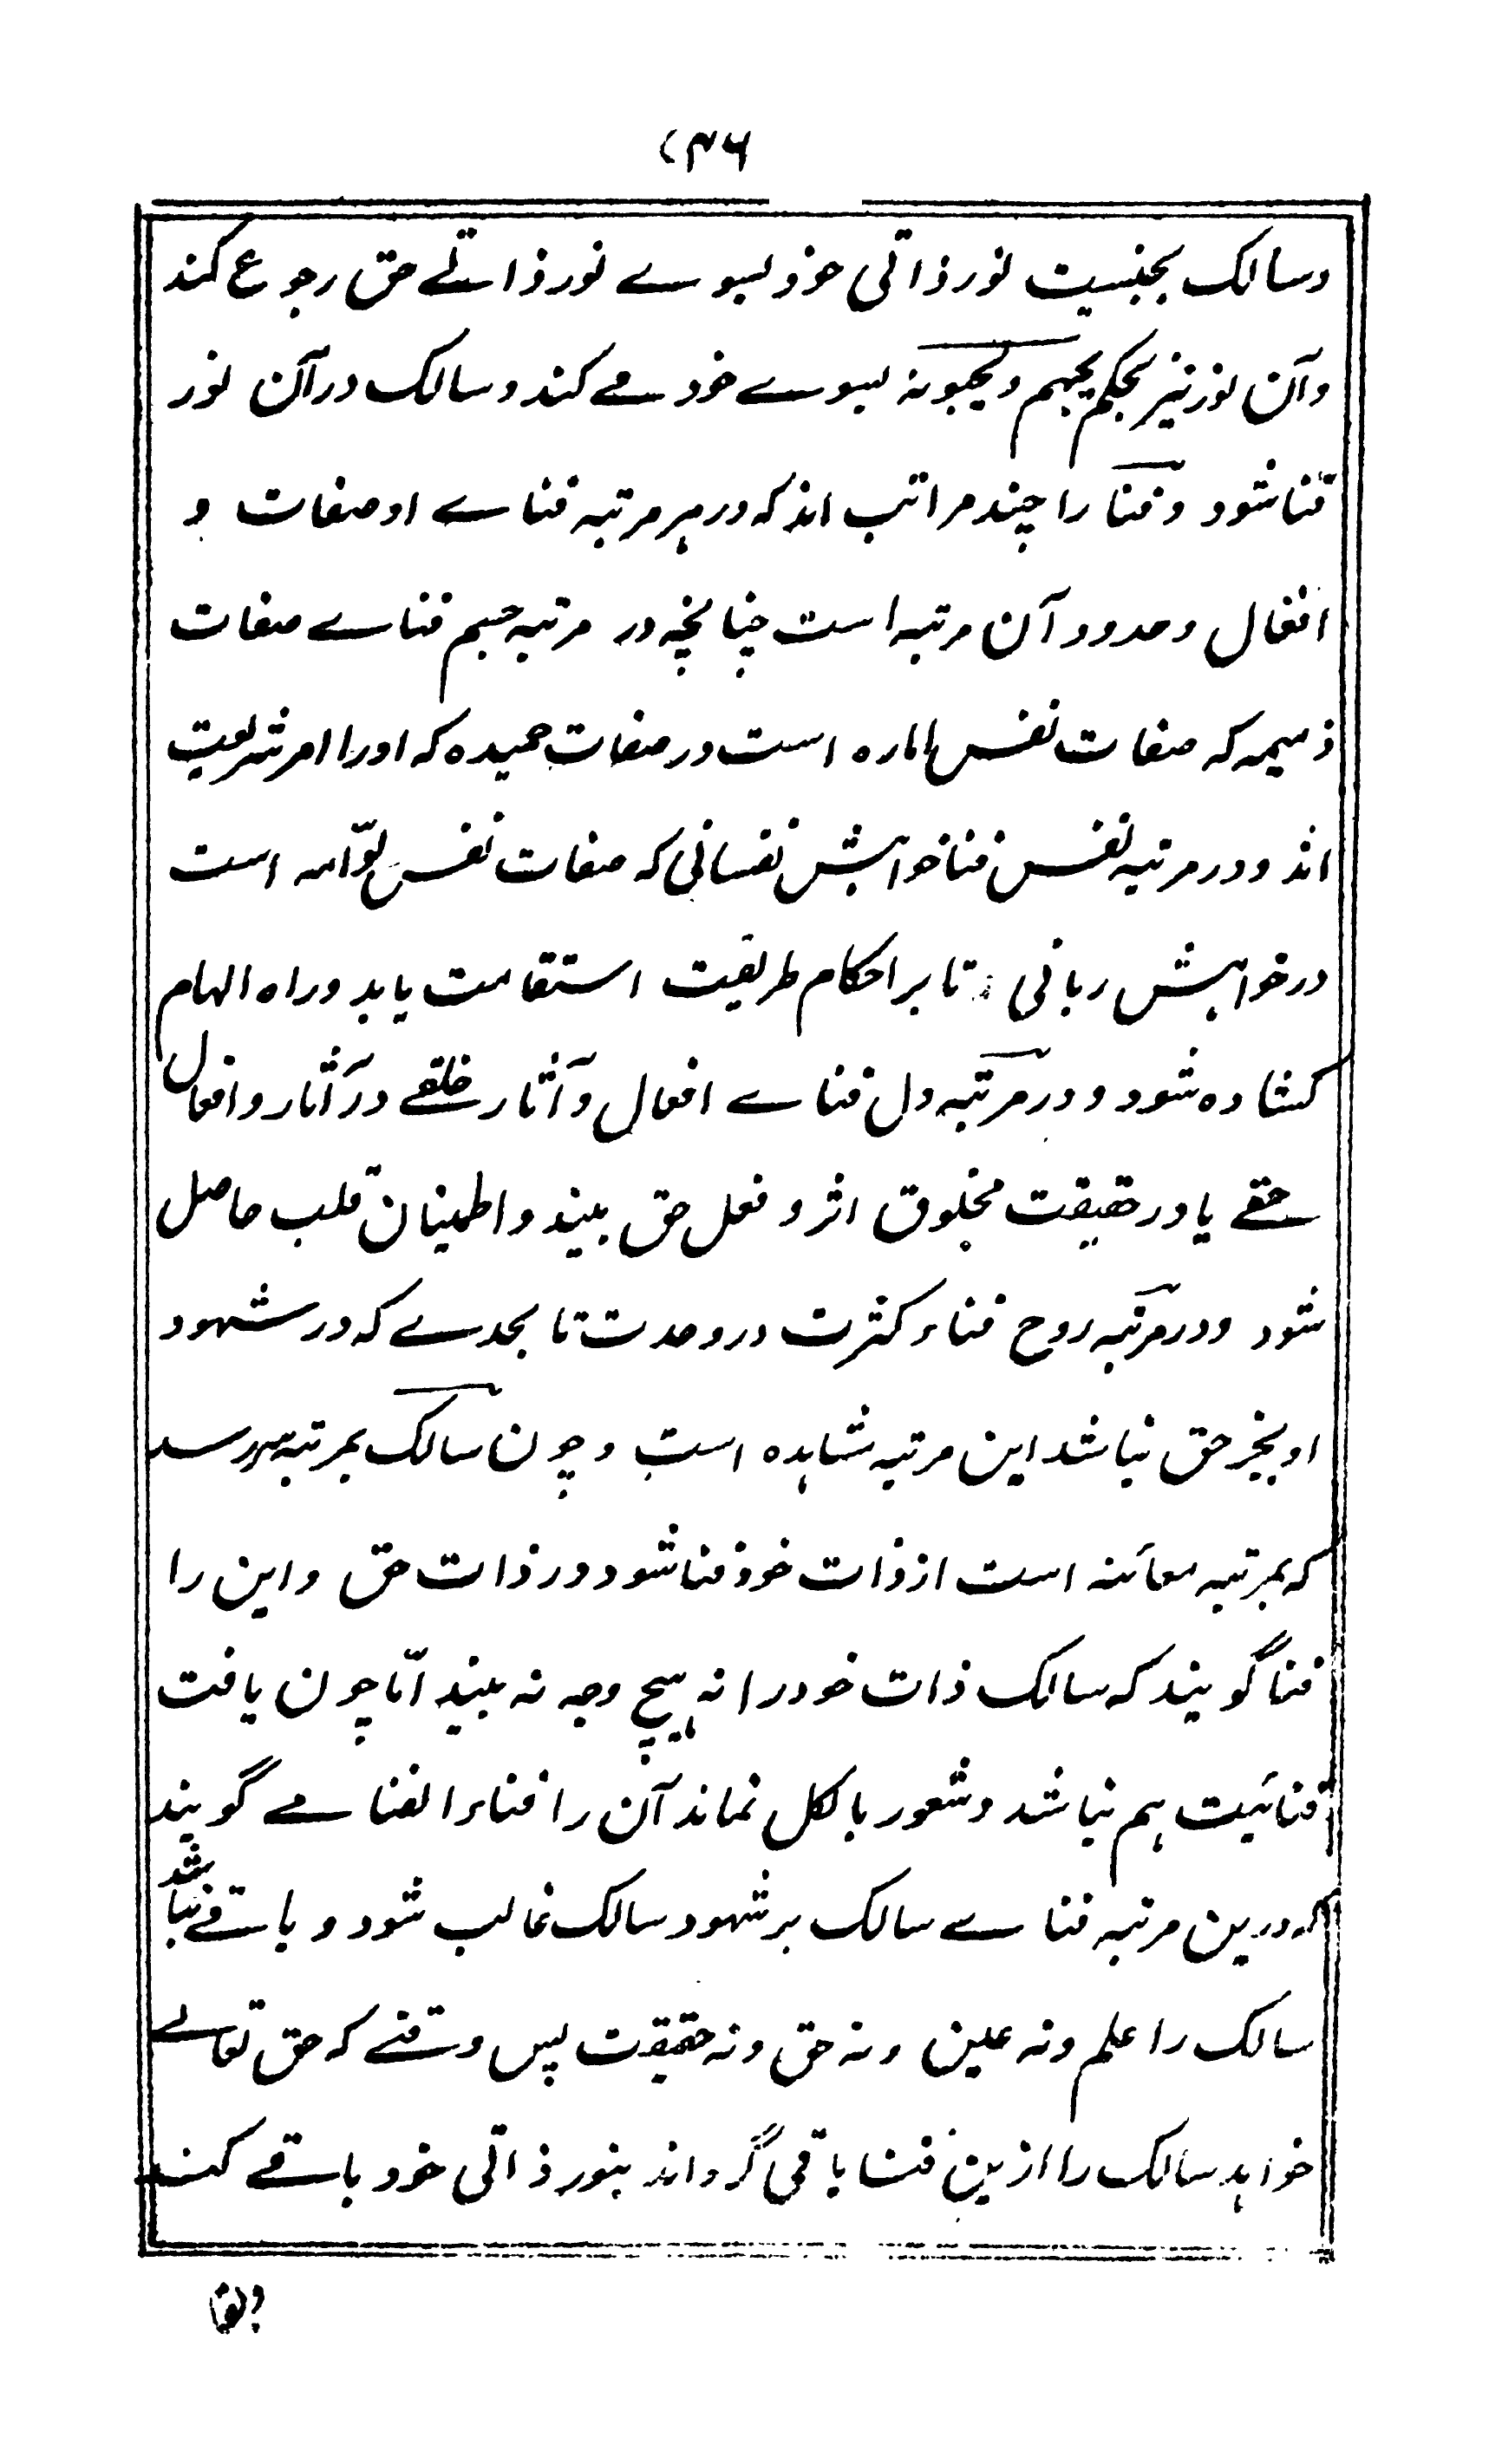 ۲۴۶
وسالک بجنسیت نور ذاتی خود بسوے نور ذاتے حق رجوع کند
وآن نور نیز بحکم یحبهم ویحبونه بسوے خود مے کند وسالک درآن نور
فنا شود وفنا را چند مراتب اند که در هر مرتبه فناے او صفات و
افعال وحدود آن مرتبه است چنانچه در مرتبه جسم فناے صفات
ذمیمه که صفات نفس اماره است در صفات حمیده که اورا امر شریعت
اند ودر مرتبه نفس فنا خواهش نفسانی که صفات نفس لوّامه است
در خواهش ربانی تا بر احکام طریقت استقامت یابد وراه الهام
کشاده شود ودر مرتبه دل فناے افعال وآثار خلقے در آثار وافعال
حقے یا در حقیقت مخلوق اثر وفعل حق بیند واطمینان قلب حاصل
شود ودر مرتبه روح فناء کثرت در وحدت تا بحدے که در شهود
او بجز حق نباشد این مرتبه مشاهده است وچون سالک بمرتبه سر رسد
که بمرتبه معائنه است از ذات خود فنا شود در ذات حق واین را
فنا گویند که سالک ذات خود را نه هیچ وجه نه بیند امّا چون یافت
فنائیت هم نباشد وشعور بالکل نماند آن را فناء الفنا مے گویند
که درین مرتبه فناے سالک بر شهود سالک غالب شود وباقے نباشد
سالک را علم ونه عین ونه حق ونه حقیقت پس وقتے که حق تعالے
خواهد سالک را ازین فنا باقی گرداند بنور ذاتی خود باقے کند